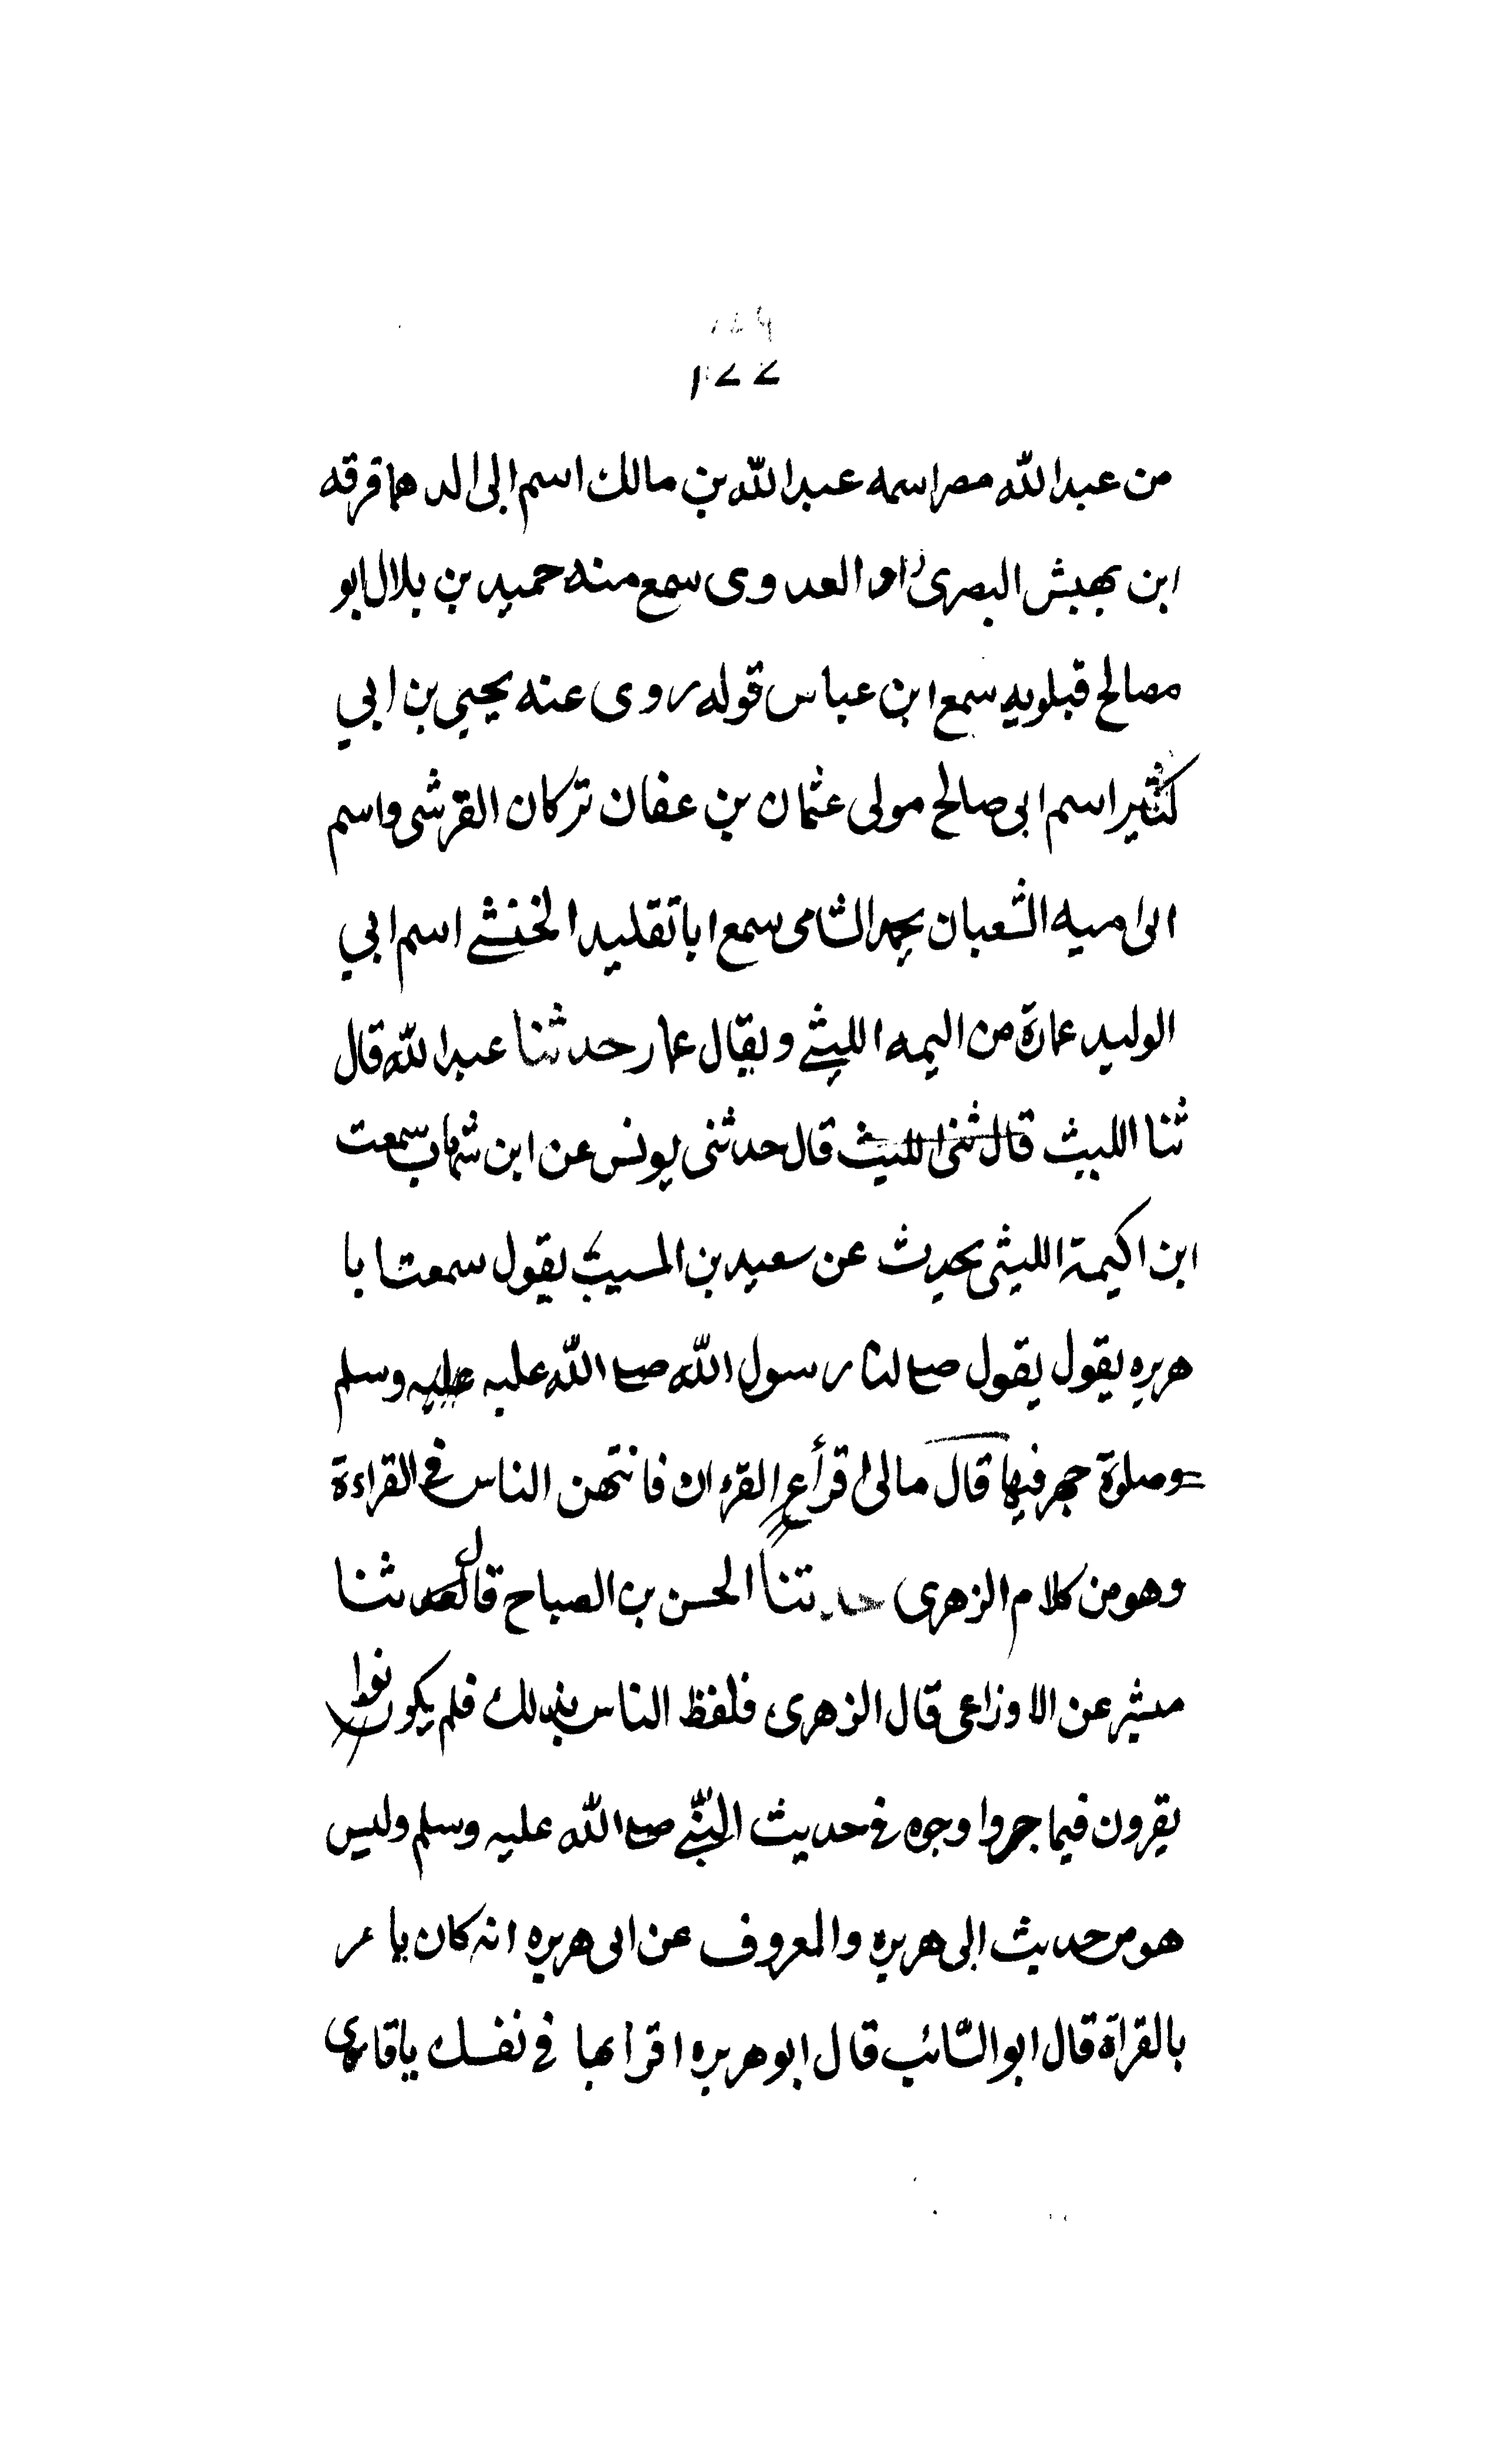 من عبدالله مصراسمه عبدالله بن مالك اسم ابى الدهما قرقه
ابن بهبش البصرى او العدوى سمع منه حميد بن بلال ابو
مصالح قبلويه سمع ابن عباس قوله روى عنه يحيى بن ابي
كثير اسم ابى صالح مولى عثمان بن عفان تركان القرشى واسم
ابى اميه الشعبان يحمد الشامى سمع اباتقليد الخنشے اسم ابي
الوليد عمارة من اليمه الليثے ويقال عمار حدثنا عبدالله قال
ثنا الليث قال ثنى الليث قال حدثنى يونس عن ابن شهاب سمعت
ابن اكيمة الليثى يحدث عن سعيد بن المسيب يقول سمعت ابا
هريره يقول يقول صلى لنا رسول الله صلى الله عليه عليه وسلم
وصلوة جهر فيها قال مالى اقرأ القرءان فانتهن الناس فى القراءة
وهو من كلام الزهرى حدثنا الحسن بن الصباح قال حدثنا
مبشر عن الاوزاعى قال الزهرى فلفظ الناس بذلك فلم يكونوا
يقرون فيما جروا وجوه فى حديث النبى صلى الله عليه وسلم وليس
هو من حديث ابى هريره والمعروف عن ابى هريره انه كان يا مر
بالقراة قال ابو السائب قال ابو هريره اقرا بها فى نفسك يا فارسى